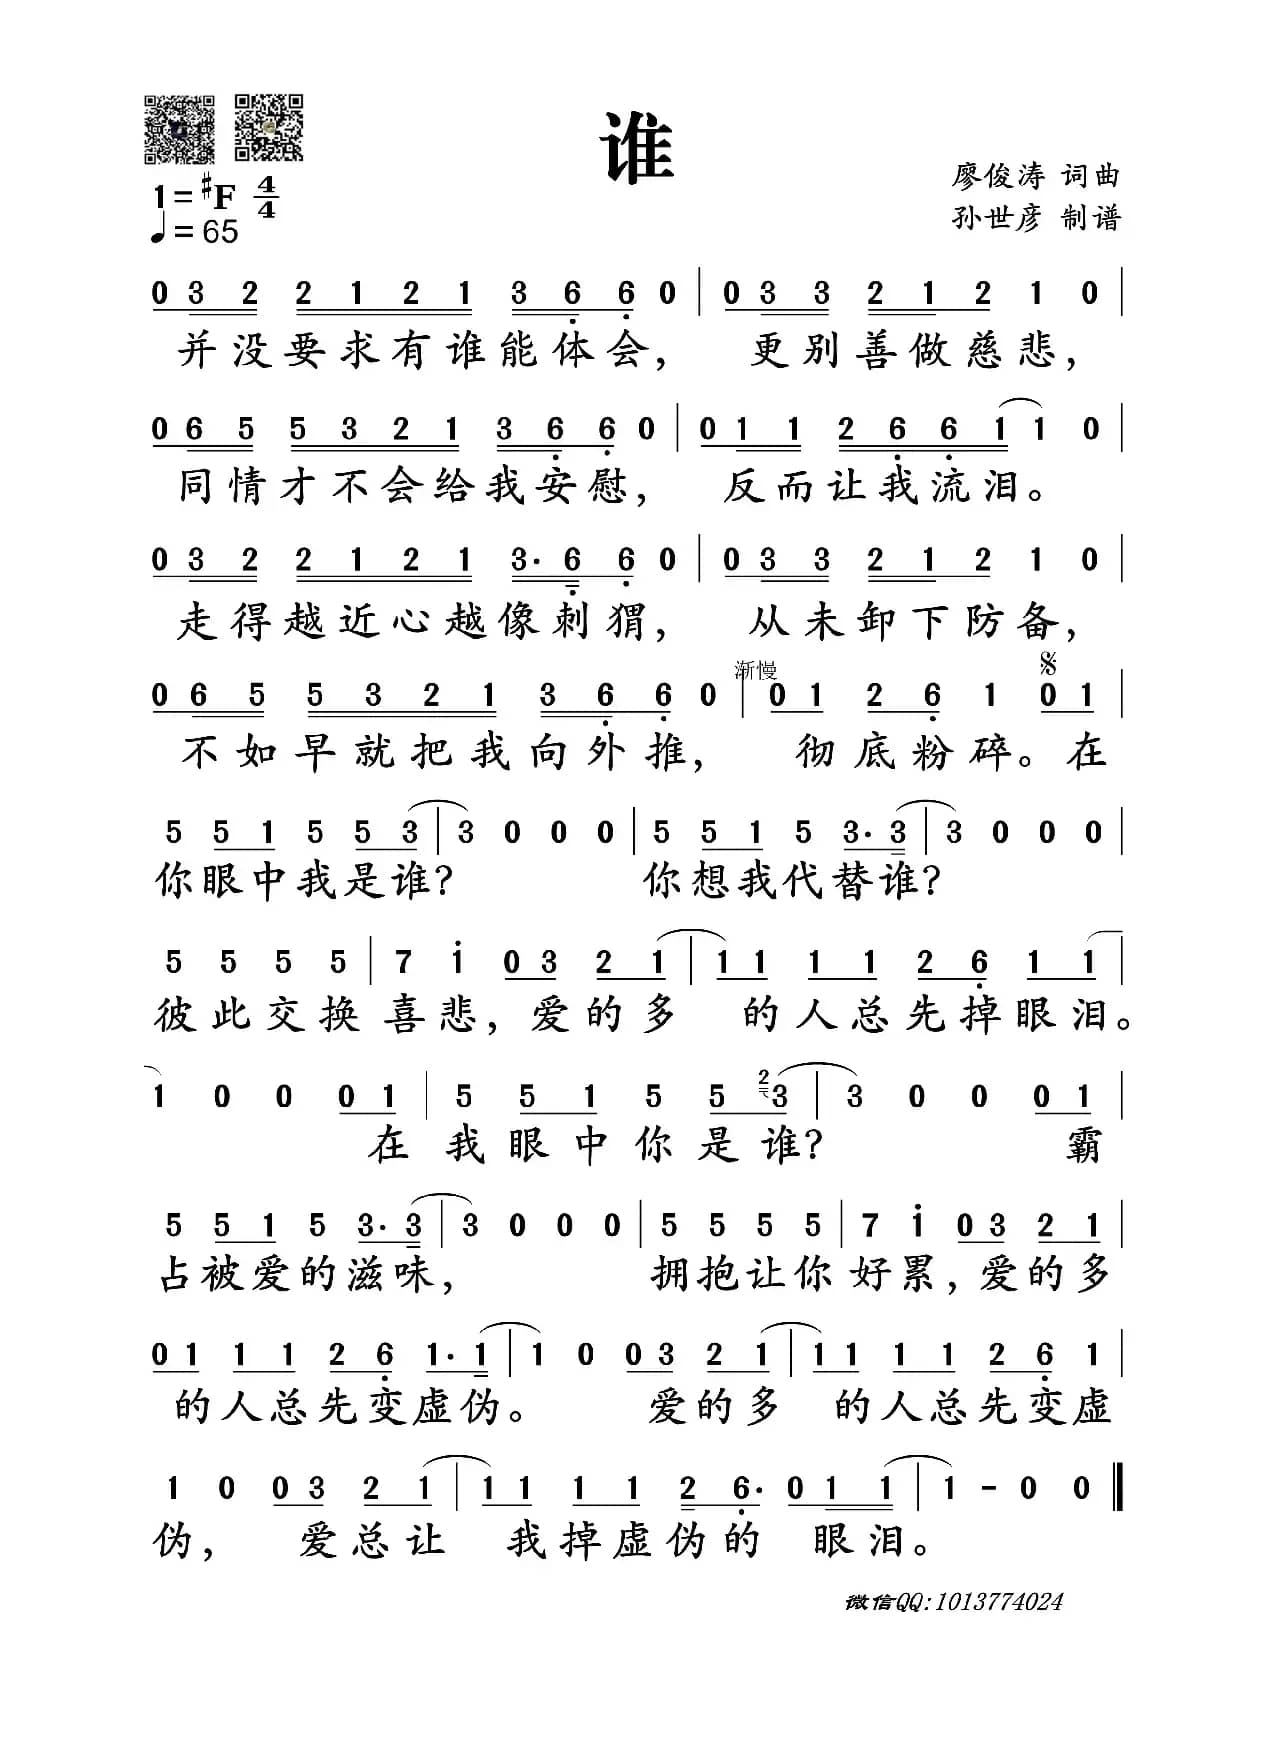 谁
1=♯F 4/4
♩=65
廖俊涛 词曲
孙世彦 制谱
0 3 2 2 1 2 1 3 6̣ 6̣ 0 | 0 3 3 2 1 2 1 0 |
并没要求有谁能体会，更别善做慈悲，
0 6 5 5 3 2 1 3 6̣ 6̣ 0 | 0 1 1 2 6̣ 6̣ 1 1 0 |
同情才不会给我安慰，反而让我流泪。
0 3 2 2 1 2 1 3· 6̣ 6̣ 0 | 0 3 3 2 1 2 1 0 |
走得越近心越像刺猬，从未卸下防备，
渐慢 𝄋
0 6 5 5 3 2 1 3 6̣ 6̣ 0 | 0 1 2 6̣ 1 0 1 |
不如早就把我向外推，彻底粉碎。在
5 5 1 5 5 3 | 3 0 0 0 | 5 5 1 5 3· 3 | 3 0 0 0 |
你眼中我是谁？你想我代替谁？
5 5 5 5 | 7 1̇ 0 3 2 1 | 1 1 1 1 2 6̣ 1 1 |
彼此交换喜悲，爱的多 的人总先掉眼泪。
1 0 0 0 1 | 5 5 1 5 5 2 3 | 3 0 0 0 1 |
在我眼中你是谁？霸
5 5 1 5 3· 3 | 3 0 0 0 | 5 5 5 5 | 7 1̇ 0 3 2 1 |
占被爱的滋味，拥抱让你好累，爱的多
0 1 1 1 2 6̣ 1· 1 | 1 0 0 3 2 1 | 1 1 1 1 2 6̣ 1 |
的人总先变虚伪。爱的多 的人总先变虚
1 0 0 3 2 1 | 1 1 1 1 2 6̣· 0 1 1 | 1 - 0 0 ‖
伪，爱总让 我掉虚伪的 眼泪。
微信QQ:1013774024